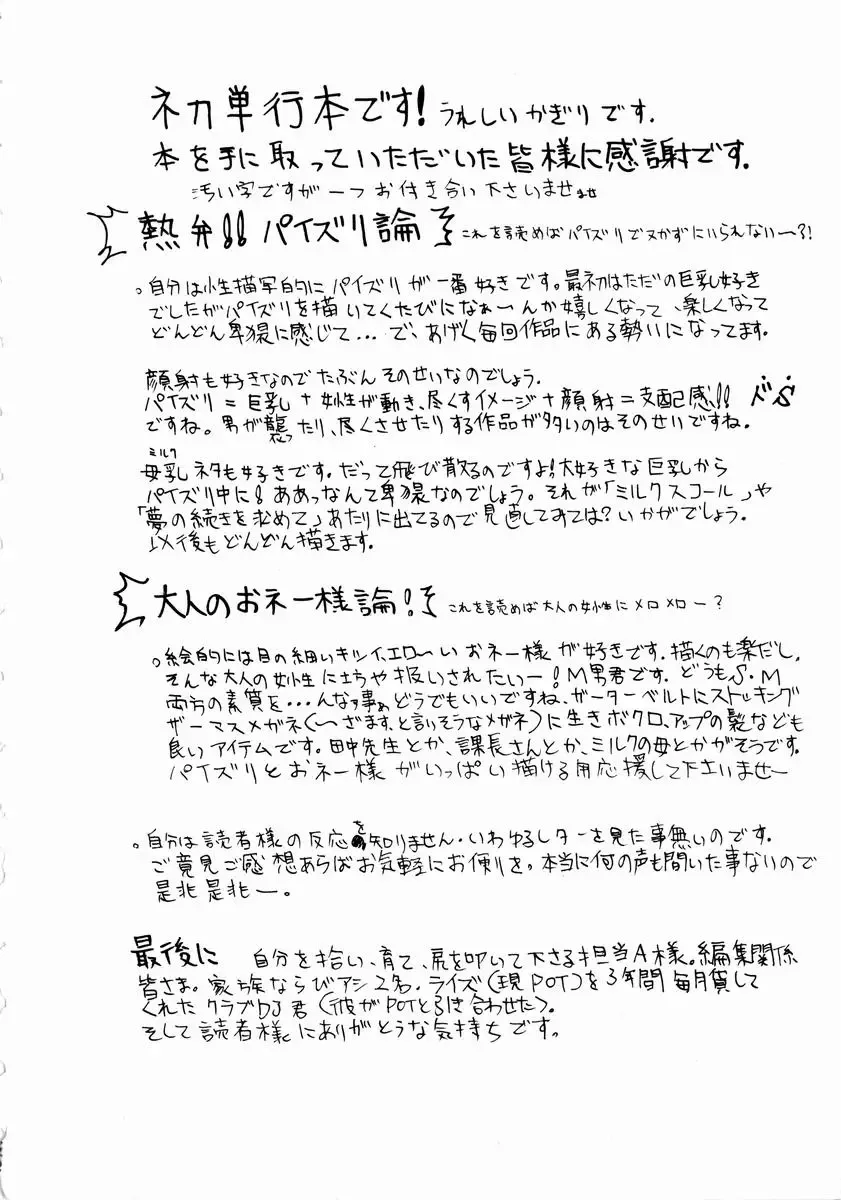 ネカ単行本です!うれしいかぎりです.
本を手に取っていただいた皆様に感謝です.
汚い字ですが一つお付き合い下さいませませ
熱弁!!パイズリ論 これを読めばパイズリでヌかずにいられないー?!
。自分は性描写的にパイズリが一番好きです。最初はただの巨乳好き
でしたがパイズリを描いてくたびになぁーんか嬉しくなって、楽しくなって
どんどん卑猥に感じて...で、あげく毎回作品にある勢いになってます.
顔射も好きなのでたぶんそのせいなのでしょう.
パイズリ=巨乳+女性が動き、尽くすイメージ+顔射=支配感!!ドS
ですね。男が襲ったり、尽くさせたりする作品が多いのはそのせいですね.
ミルク
母乳ネタも好きです.だって飛び散るのですよ!大好きな巨乳から
パイズリ中に!ああっなんて卑猥なのでしょう。それが「ミルクスコール」や
「夢の続きを求めて」あたりに出てるので見直してみては?いかがでしょう.
以後もどんどん描きます.
大人のおネー様論! これを読めば大人の女性にメロメロー?
。絵的には目の細いキツイ、エロ〜いおネー様が好きです.描くのも楽だし、
そんな大人の女性に玩扱いされたいー!M男君です.どうもS・M
両方の素質を...んな事ぁどうでもいいですね、ガーターベルトにストッキング
ザーマスメガネ(〜ざます、と言いそうなメガネ)に生きボクロ、アップの髪なども
良いアイテムです.田中先生とか、課長さんとか、ミルクの母とかがそうです.
パイズリとおネー様がいっぱい描ける用応援して下さいませー
。自分は読者様の反応を知りません.いわゆるレターを見た事無いのです.
ご意見ご感想あらばお気軽にお便りを。本当に何の声も聞いた事ないので
是非是非ー。
最後に 自分を拾い、育て、尻を叩いて下さる担当A様。編集関係
皆さま。家族ならびアシ2名.ライズ(現POT)を3年間毎月貸して
くれたクラブDJ君(彼がPOTと引き合わせた)。
そして読者様にありがとうな気持ちです。